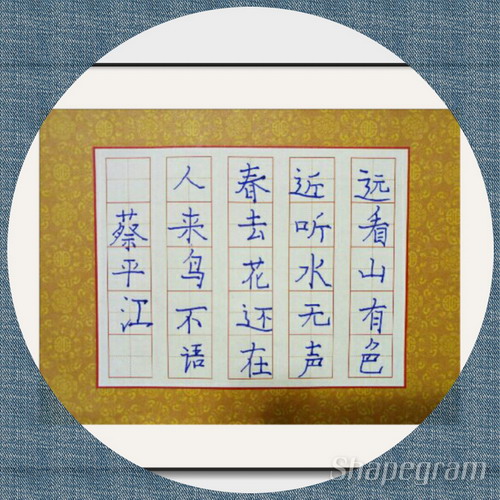 远看山有色
近听水无声
春去花还在
人来鸟不语
蔡平江
Shapegram